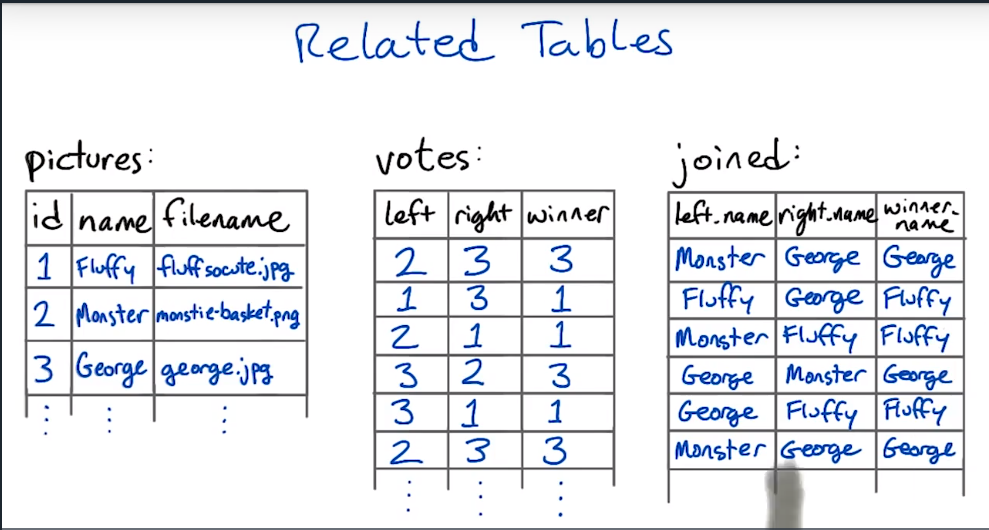 Related Tables
pictures:
id name filename
1 Fluffy fluffsocute.jpg
2 Monster monstie-basket.png
3 George george.jpg
votes:
left right winner
2 3 3
1 3 1
2 1 1
3 2 3
3 1 1
2 3 3
joined:
left_name right_name winner_
name
Monster George George
Fluffy George Fluffy
Monster Fluffy Fluffy
George Monster George
George Fluffy Fluffy
Monster George George